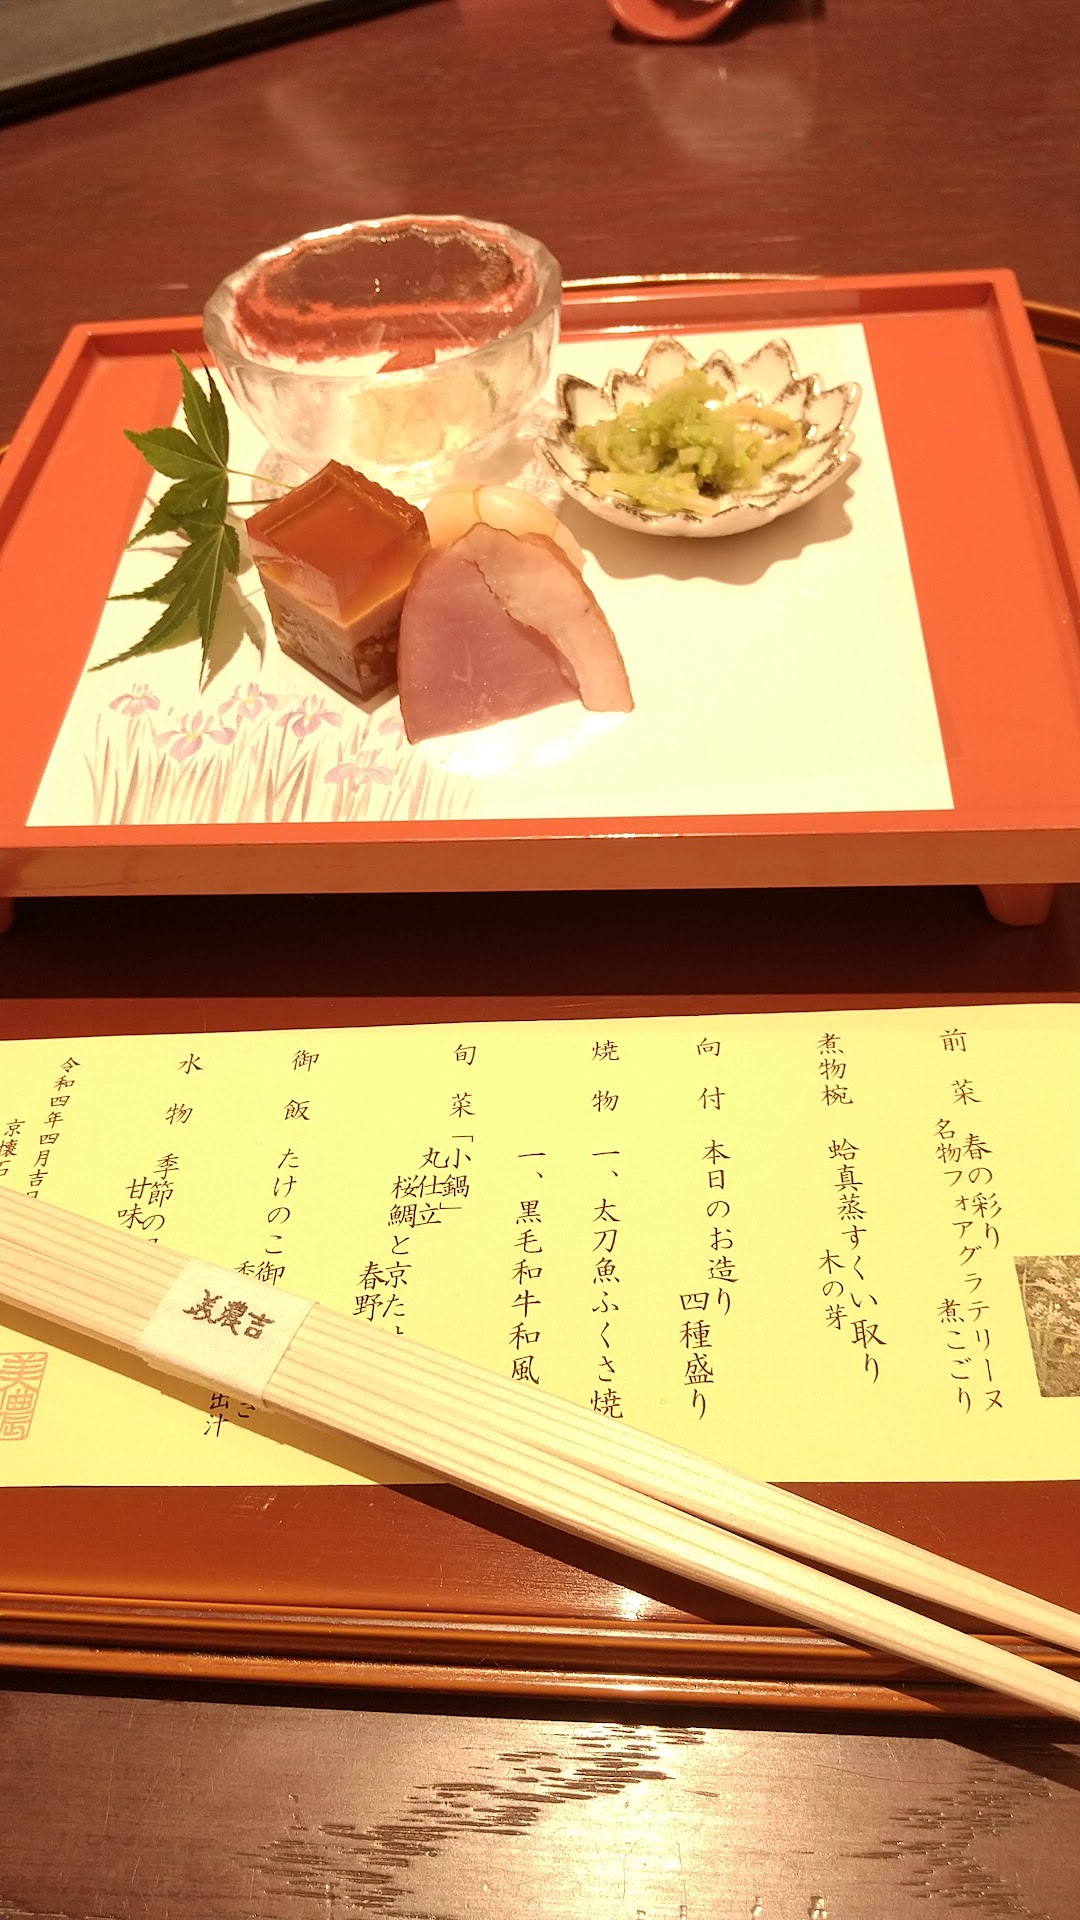 前菜 春の彩り
名物フォアグラテリーヌ 煮こごり
煮物椀 蛤真蒸すくい取り
木の芽
向付 本日のお造り 四種盛り
焼物 一、太刀魚ふくさ焼
一、黒毛和牛和風
旬菜「小鍋」
丸仕立
桜鯛と京た
春野
御飯 たけのこ御
出汁
水物 季節の
甘味
令和四年四月吉
京懐石
美濃吉
美濃